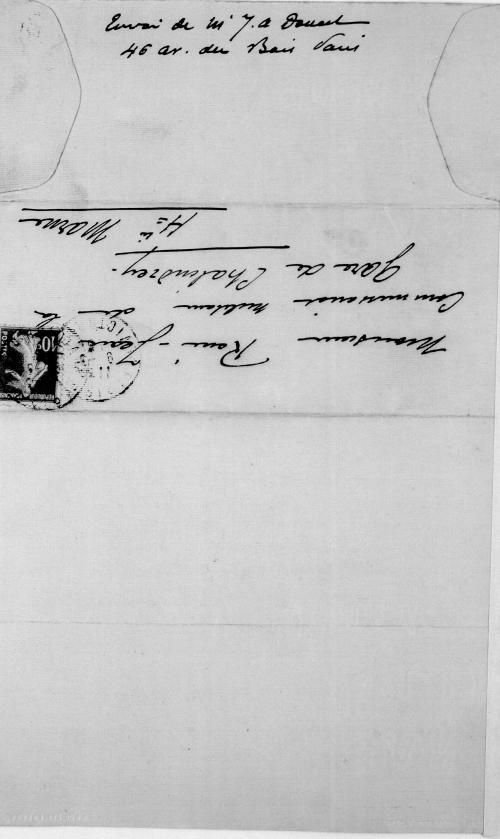 Envoi de M J. A Doucet
46 av. du Bois Paris
Monsieur René-Jean
Commissaire militaire de la
gare de Chalindrey.
Hte Marne
10c
POSTES
REPUBLIQUE FRANÇAISE